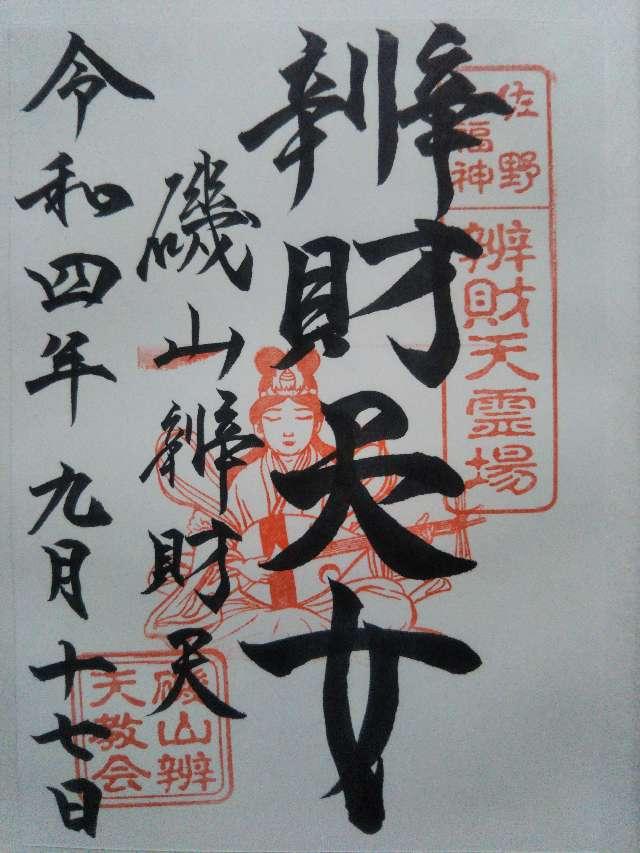 佐野
福神
辨財天霊場
辨財天女
磯山辨財天
令和四年九月十七日
磯山辨
天教会